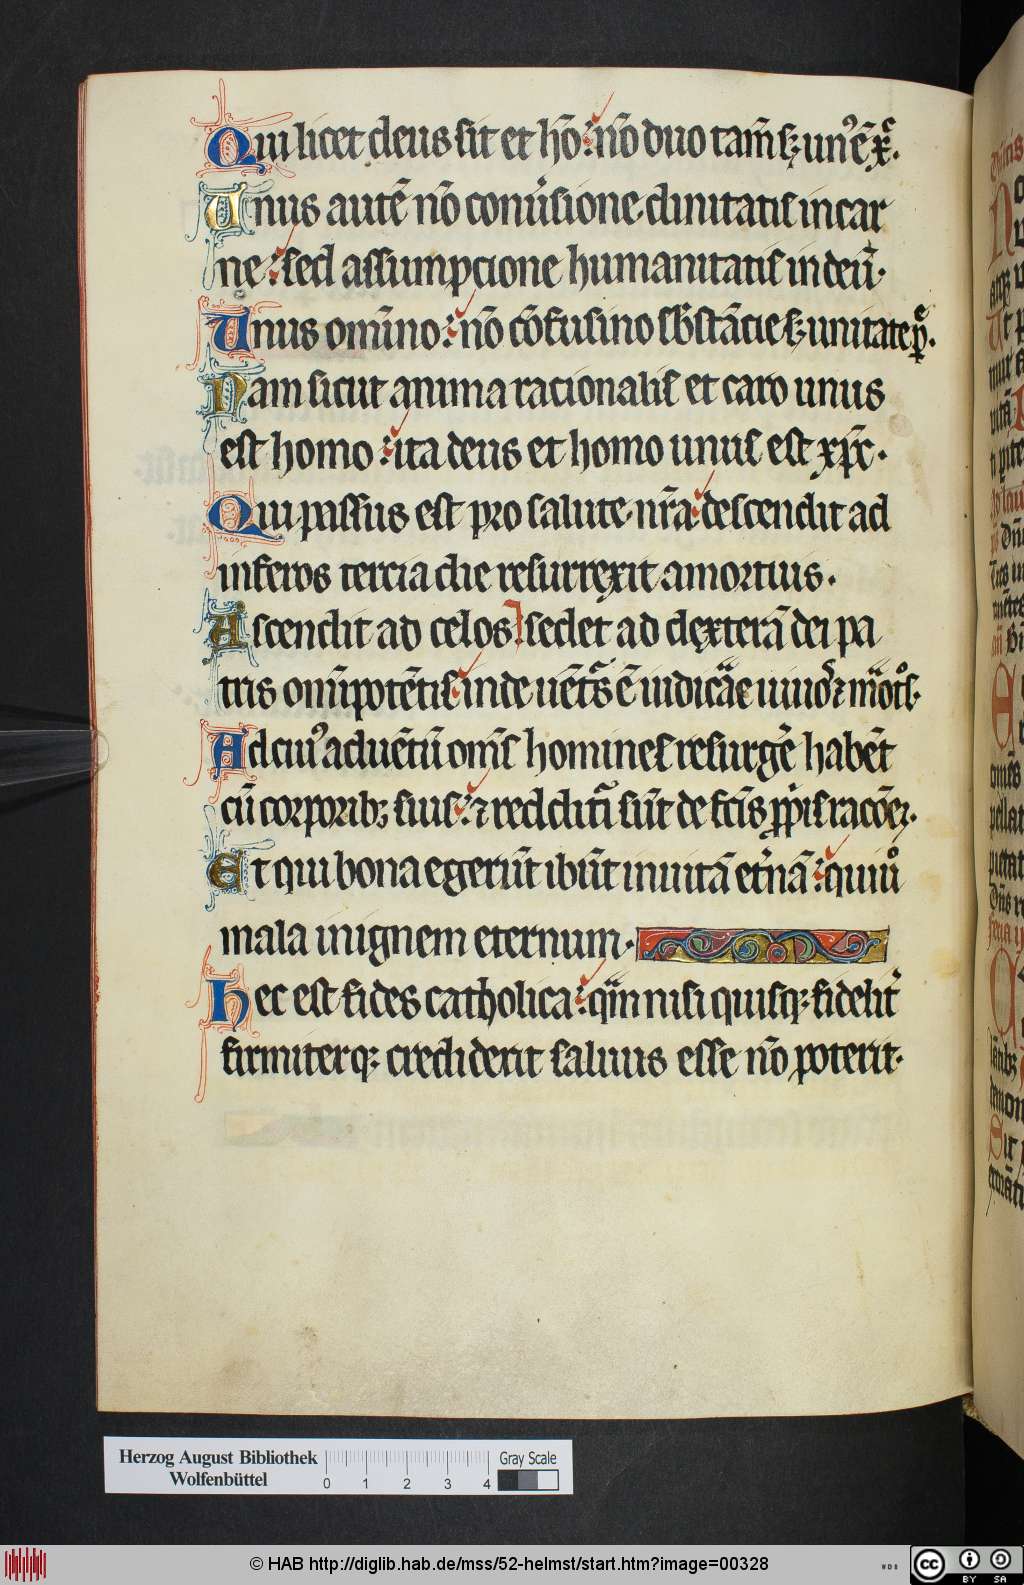 Qui licet deus sit et hō: nō duo tam̄ sꝫ unꝰ ē xp̄c.
Unus autē nō conūsione diuinitatis in car
ne: sed assumpcione humanitatis in deū.
Unus omīno: nō cōfusino sb̄stācie sꝫ unitate p̱.
Nam sicut anima racionalis et caro unus
est homo: ita deus et homo unus est xp̄c.
Qui passus est pro salute nr̄a: descendit ad
inferos tercia die resurrexit a mortuis.
Ascendit ad celos: sedet ad dexterā dei pa
tris om̄ipotētis: inde uēt̄s ē iudicāe uiuoꝝ ⁊ mōt̄s.
Ad cuiꝰ aduētū om̄s homines resurgē̄ habēt
cū corporibꝫ suis: ⁊ reddit̄i sūt de fc̄is pp̄is racōeꝫ.
Et qui bona egerūt ibūt in uitā et̄nā: qui ūo
mala in ignem eternum.
Hec est fides catholica: qm̄ nisi quisqꝫ fidelit̄
firmiterqꝫ crediderit saluus esse nō poterit.
Herzog August Bibliothek
Wolfenbüttel
0 1 2 3 4
Gray Scale
© HAB http://diglib.hab.de/mss/52-helmst/start.htm?image=00328
WDB
cc BY SA